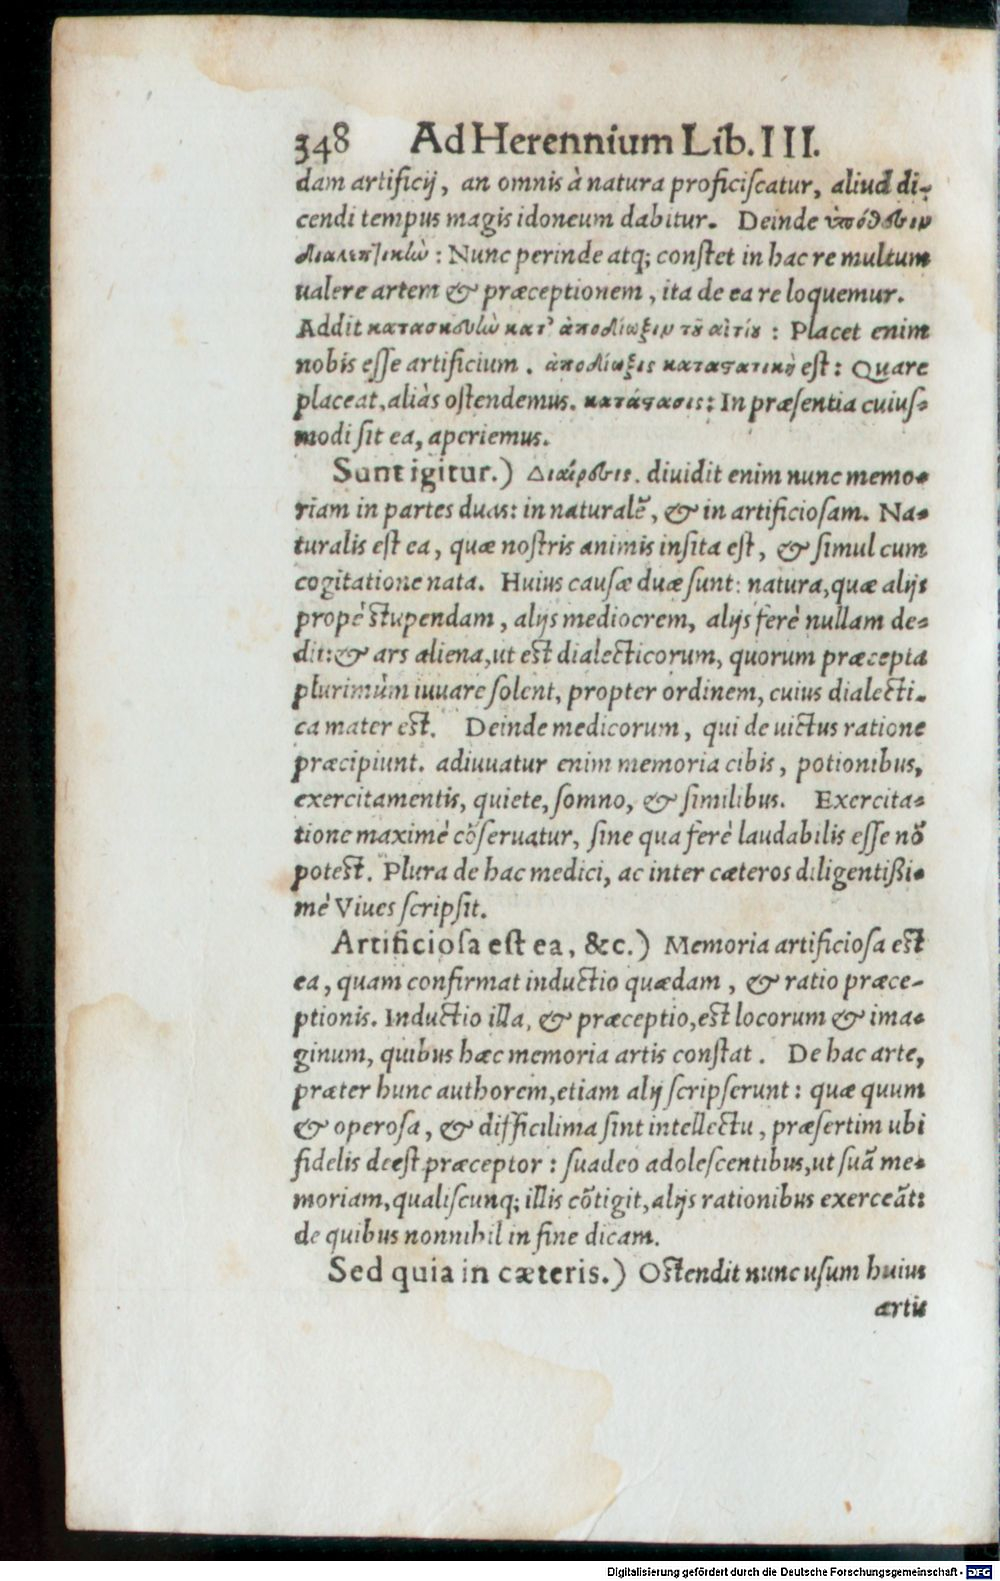 348 Ad Herennium Lib. III.
dam artificij, an omnis à natura proficiscatur, aliud di-
cendi tempus magis idoneum dabitur. Deinde ὑπόθεσιν
διαλεκτικὴν: Nunc perinde atq; constet in hac re multum
ualere artem & præceptionem, ita de ea re loquemur.
Addit κατασκευὴν κατ' ἀποδίωξιν τοῦ αἰτίου: Placet enim
nobis esse artificium. ἀποδίωξις καταστατικὴ est: Quare
placeat, aliàs ostendemus. κατάστασις: In præsentia cuius-
modi sit ea, aperiemus.
Sunt igitur.) Διαίρεσις. diuidit enim nunc memo-
riam in partes duas: in naturalē, & in artificiosam. Na-
turalis est ea, quæ nostris animis insita est, & simul cum
cogitatione nata. Huius causæ duæ sunt: natura, quæ alijs
propè stupendam, alijs mediocrem, alijs ferè nullam de-
dit: & ars aliena, ut est dialecticorum, quorum præcepta
plurimùm iuuare solent, propter ordinem, cuius dialecti-
ca mater est. Deinde medicorum, qui de uictus ratione
præcipiunt. adiuuatur enim memoria cibis, potionibus,
exercitamentis, quiete, somno, & similibus. Exercita-
tione maximè cōseruatur, sine qua ferè laudabilis esse nō
potest. Plura de hac medici, ac inter cæteros diligentißi-
mè Viues scripsit.
Artificiosa est ea, &c.) Memoria artificiosa est
ea, quam confirmat inductio quædam, & ratio præce-
ptionis. Inductio illa, & præceptio, est locorum & ima-
ginum, quibus hæc memoria artis constat. De hac arte,
præter hunc authorem, etiam alij scripserunt: quæ quum
& operosa, & difficilima sint intellectu, præsertim ubi
fidelis deest præceptor: suadeo adolescentibus, ut suā me-
moriam, qualiscunq; illis cōtigit, alijs rationibus exerceāt:
de quibus nonnihil in fine dicam.
Sed quia in cæteris.) Ostendit nunc usum huius
artis
Digitalisierung gefördert durch die Deutsche Forschungsgemeinschaft - DFG